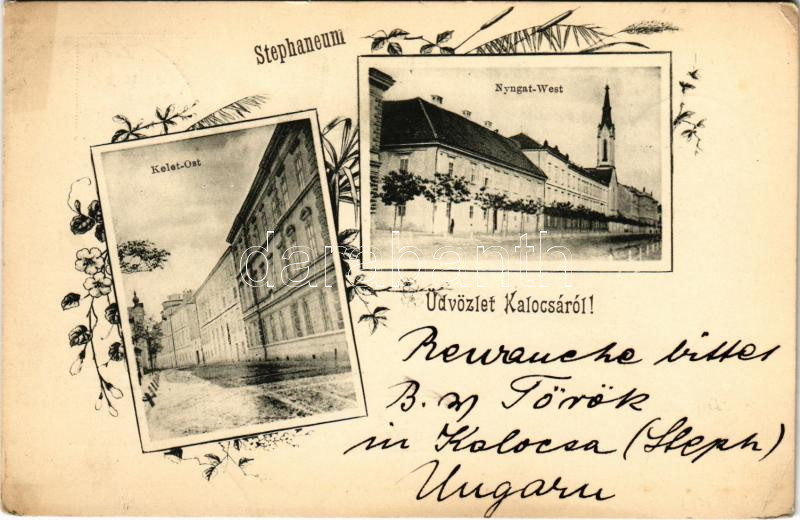 Stephaneum
Nyugat-West
Kelet-Ost
darabanth
Üdvözlet Kalocsáról!
Rewanche bittet
B. v Török
in Kalocsa (Steph)
Ungarn